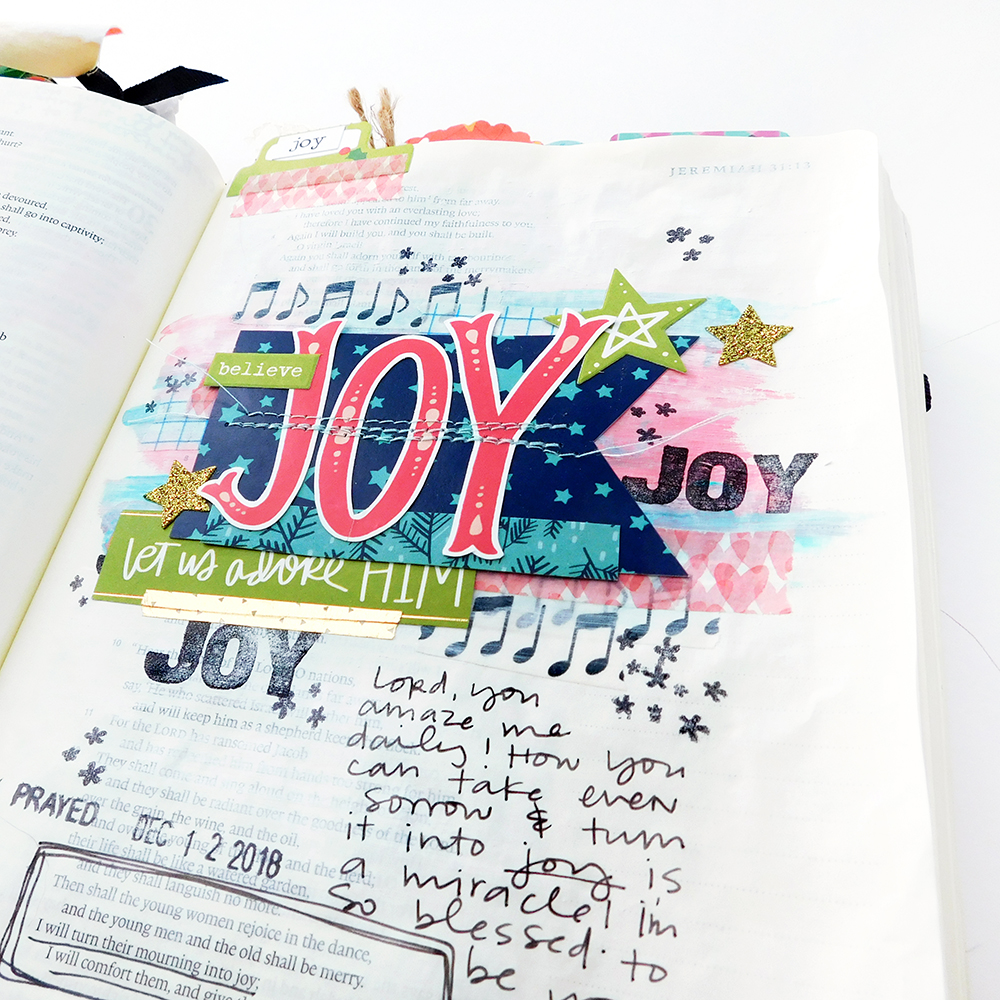 ant.
hurt?
devoured,
shall go into captivity;
ed,
prey.
b
joy
JEREMIAH 31:13
him from far away.
I have loved you with an everlasting love;
therefore I have continued my faithfulness to you.
Again I will build you, and you shall be built,
O virgin Israel!
Again you shall adorn yourself with
and shall go forth in the of merrymakers.
believe
JOY
JOY
let us adore HIM
JOY
10 of LORD, O nations,
say, 'He who scattered him,
and will keep him as a shepherd keeps flock.'
11 For the LORD has ransomed Jacob
and has him from hands too strong for him.
They shall come and sing aloud on the height
and they shall be radiant over the goodness of the
over the grain, the wine, and the oil,
and over the young and the herd;
their life shall be like a watered garden,
and they shall languish no more.
Then shall the young women rejoice in the dance,
and the young men and the old shall be merry.
I will turn their mourning into joy;
I will comfort them, and give
PRAYED DEC 12 2018
Lord, you
amaze me
daily! How you
can take even
sorrow & turn
it into joy is
a miracle! I'm
so blessed to
be